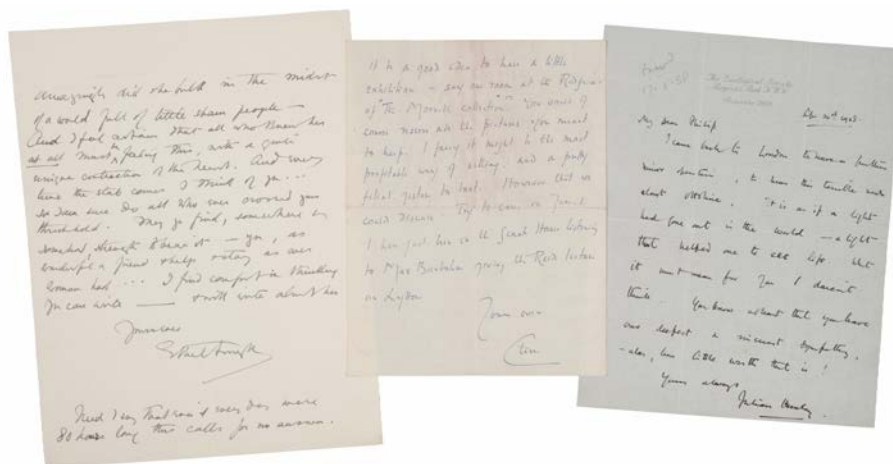 Amazingly did she bulk in the midst
of a world full of little sham people —
And I feel certain that all who knew her
at all must be feeling this, with a quite
unique contraction of the heart. And every
time the stab comes I think of you ...
so I am sure do all who ever crossed your
threshold. May you find, somewhere or
somehow, strength to bear it — you, as
wonderful a friend & help & stay as ever
woman had ... I find comfort in thinking
you can write — & will write about her
Yours ever
Ethel Smyth
Need I say that even if every day were
80 hours long this calls for no answer.
It is a good idea to have a little
exhibition — say one room at the Redfern
of "The Morrell collection". You would of
course mark all the pictures you meant
to keep. I fancy it might be the most
profitable way of selling, and a pretty
filial gesture to boot. However that we
could discuss. Try to come on
I have just been in the Senate House listening
to Max Beerbohm giving the Rede lecture
on Lytton
Yours ever
The Zoological Society
Regent's Park N.W.8
My dear Philip
I came back to London to have a further
minor operation, to hear this terrible news
about Ottoline. It is as if a light
had gone out in the world — a light
that helped one to see life. What
it must mean for you I daren't
think. You know without that you have
our deepest & sincerest sympathy,
— alas, how little worth that is!
Yours always
Julian Huxley.